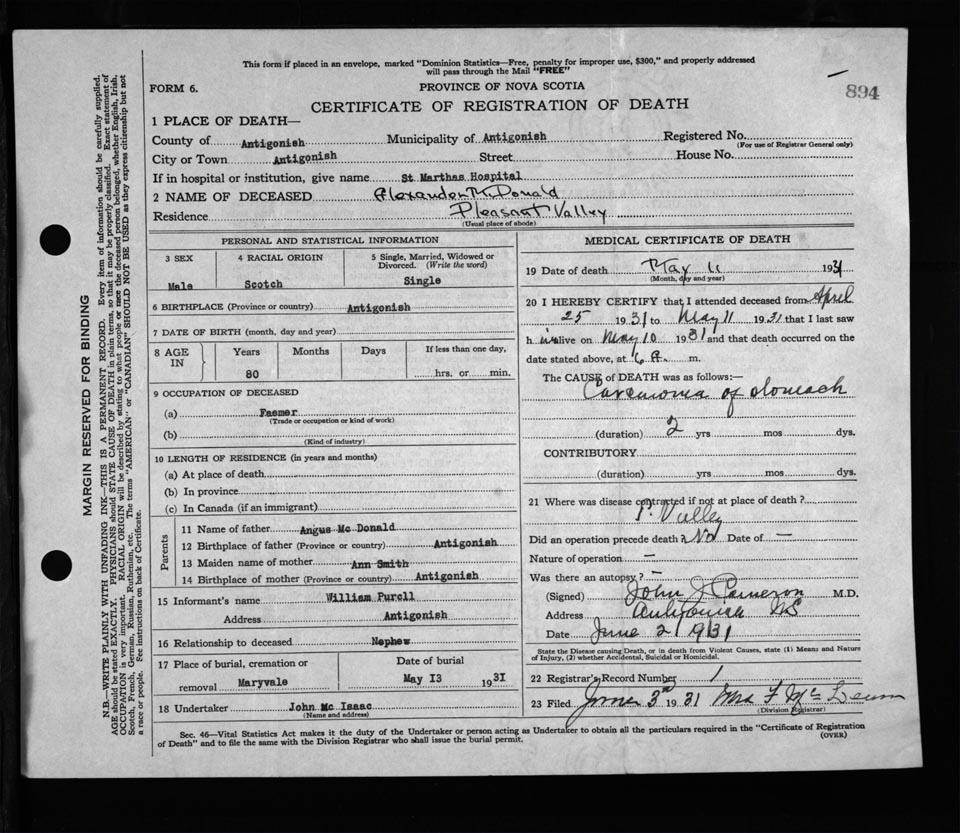 This form if placed in an envelope, marked "Dominion Statistics—Free, penalty for improper use, $300," and properly addressed
will pass through the Mail "FREE"
894
FORM 6.
PROVINCE OF NOVA SCOTIA
CERTIFICATE OF REGISTRATION OF DEATH
1 PLACE OF DEATH—
County of Antigonish Municipality of Antigonish Registered No.
(For use of Registrar General only)
City or Town Antigonish Street House No.
If in hospital or institution, give name St Marthas Hospital
2 NAME OF DECEASED Alexander McDonald
Residence Pleasnat Valley
(Usual place of abode)
PERSONAL AND STATISTICAL INFORMATION
3 SEX 4 RACIAL ORIGIN 5 Single, Married, Widowed or
Divorced. (Write the word)
Male Scotch Single
6 BIRTHPLACE (Province or country) Antigonish
7 DATE OF BIRTH (month, day and year)
8 AGE IN Years Months Days If less than one day,
80 hrs. or min.
9 OCCUPATION OF DECEASED
(a) Fasmer
(Trade or occupation or kind of work)
(b)
(Kind of industry)
10 LENGTH OF RESIDENCE (in years and months)
(a) At place of death
(b) In province
(c) In Canada (if an immigrant)
Parents
11 Name of father Angus Mc Donald
12 Birthplace of father (Province or country) Antigonish
13 Maiden name of mother Ann Smith
14 Birthplace of mother (Province or country) Antigonish
15 Informant's name William Purcll
Address Antigonish
16 Relationship to deceased Nephew
17 Place of burial, cremation or Date of burial
removal Maryvale May 13 1931
18 Undertaker John Mc Isaac
(Name and address)
MEDICAL CERTIFICATE OF DEATH
19 Date of death May 11 1931
(Month, day and year)
20 I HEREBY CERTIFY that I attended deceased from April
25 1931 to May 11 1931 that I last saw
h im alive on May 10 1931 and that death occurred on the
date stated above, at 6 A. m.
The CAUSE of DEATH was as follows:—
Carcinoma of stomach
(duration) 2 yrs mos dys.
CONTRIBUTORY
(duration) yrs mos dys.
21 Where was disease contracted if not at place of death?
P. Valley
Did an operation precede death? No Date of —
Nature of operation —
Was there an autopsy? —
(Signed) John J Cameron M.D.
Address Antigonish NS
Date June 2 1931
State the Disease causing Death, or in death from Violent Causes, state (1) Means and Nature
of Injury, (2) whether Accidental, Suicidal or Homicidal.
22 Registrar's Record Number 1
23 Filed June 3rd 1931 Mrs F Mc
(Division Registrar)
Sec. 46—Vital Statistics Act makes it the duty of the Undertaker or person acting as Undertaker to obtain all the particulars required in the "Certificate of Registration
of Death" and to file the same with the Division Registrar who shall issue the burial permit.
(OVER)
MARGIN RESERVED FOR BINDING
N.B.—WRITE PLAINLY WITH UNFADING INK—THIS IS A PERMANENT RECORD. Every item of information should be carefully supplied.
AGE should be stated EXACTLY. PHYSICIANS should STATE CAUSE OF DEATH in plain terms, so that it may be properly classified. Exact statement of
OCCUPATION is very important. RACIAL ORIGIN will be described by stating to what people or race the deceased person belonged, whether English, Irish,
Scotch, French, German, Russian, Ruthenian, etc. The terms "AMERICAN" or "CANADIAN" SHOULD NOT BE USED as they express citizenship but not
a race or people. See instructions on back of Certificate.